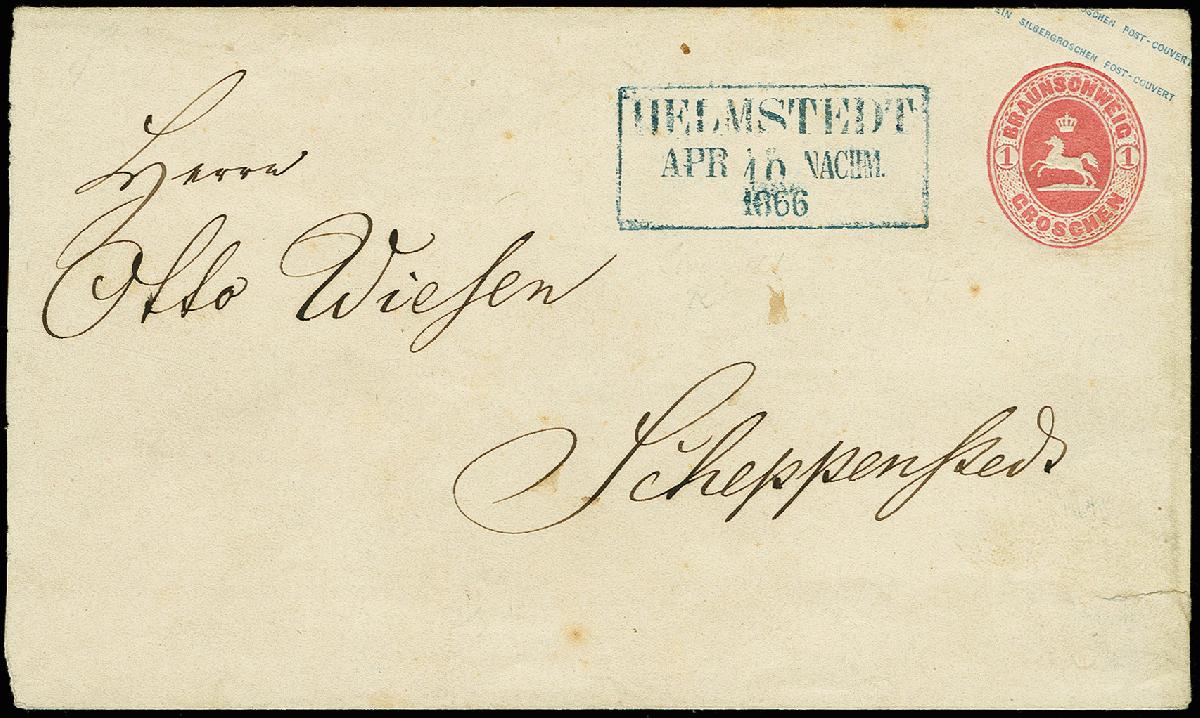 OSCHEN POST-COUVERT
EIN SILBERGROSCHEN POST-COUVERT
HELMSTEDT
APR NACHM.
1866
BRAUNSCHWEIG
1 1
GROSCHEN
Herrn
Otto Wiesen
Scheppenstedt